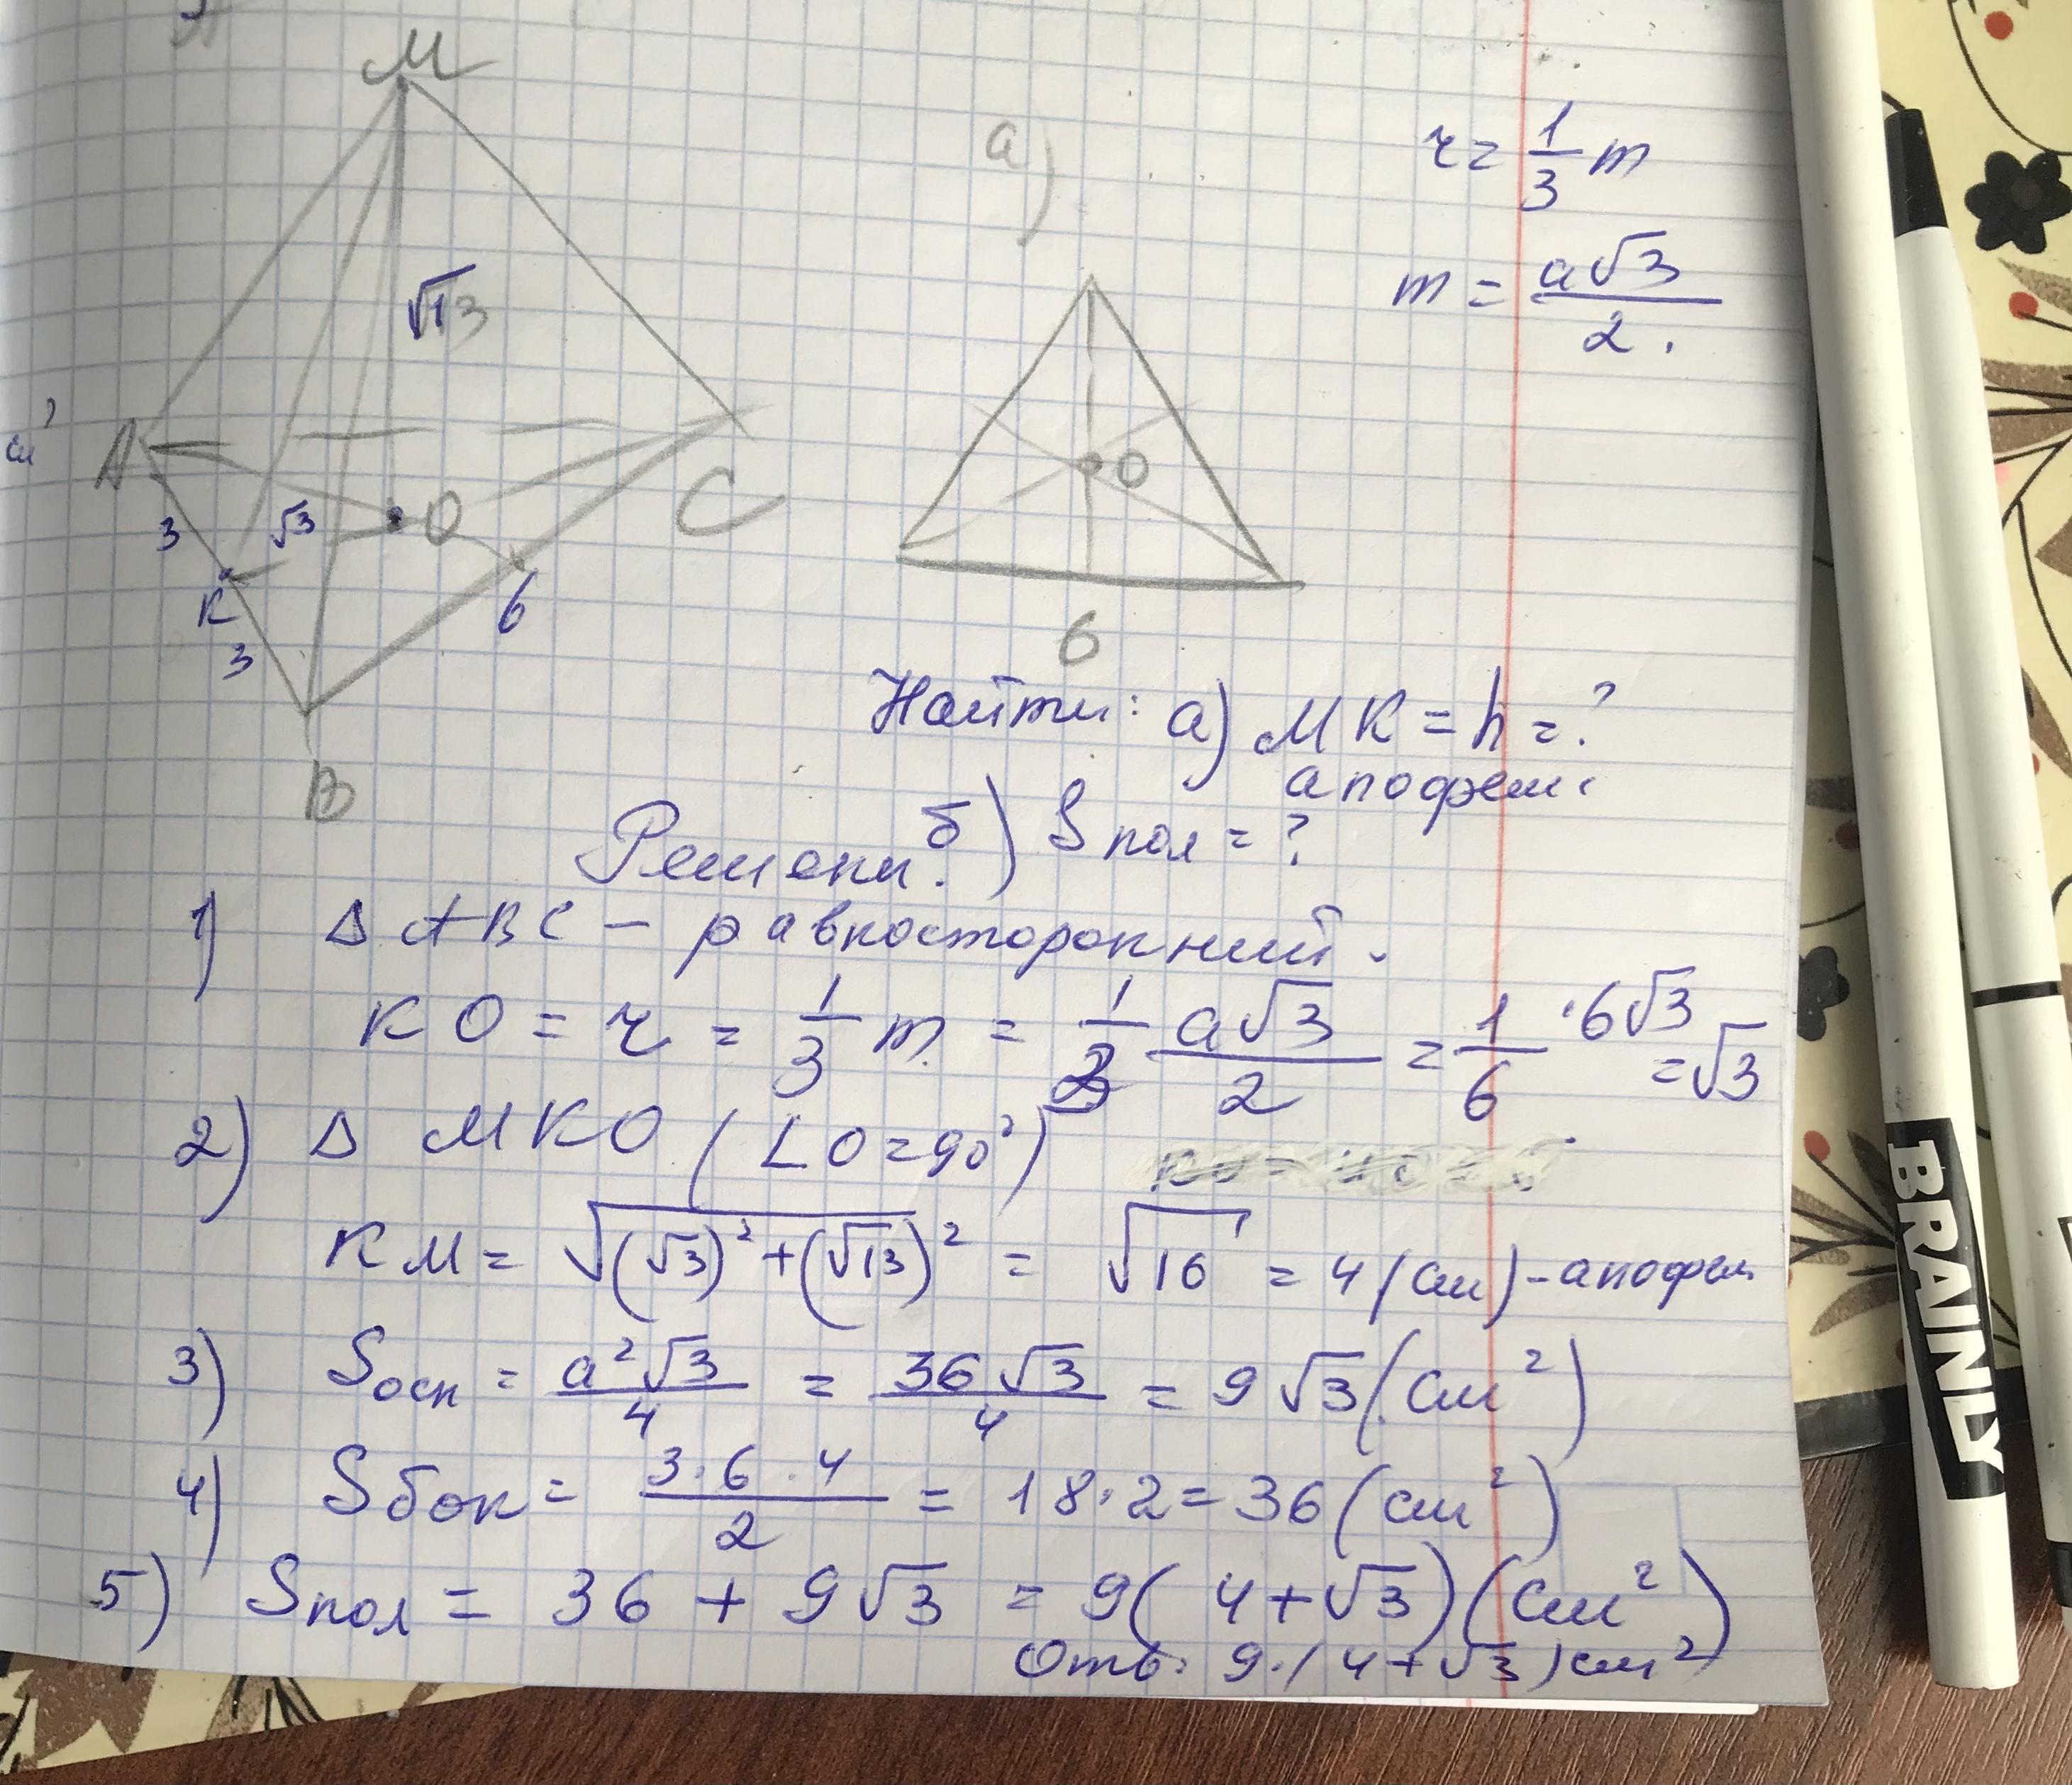 M
√13
A
3
√3
O
K
3
6
C
B
а)
O
6
r = 1/3 m
m = a√3/2.
Найти: а) MK = h = ?
апофем.
б) Sпол = ?
Решени.
1) Δ ABC – равносторонний.
KO = r = 1/3 m = 1/3 a√3/2 = 1/6 · 6√3 = √3
2) Δ MKO (∠O = 90°)
KM = √((√3)² + (√13)²) = √16 = 4 (см) – апофем
3) Sосн = a²√3/4 = 36√3/4 = 9√3 (см²)
4) Sбок = 3·6·4/2 = 18·2 = 36 (см²)
5) Sпол = 36 + 9√3 = 9(4+√3)(см²)
Отв: 9·(4+√3) см²
BRAINLY